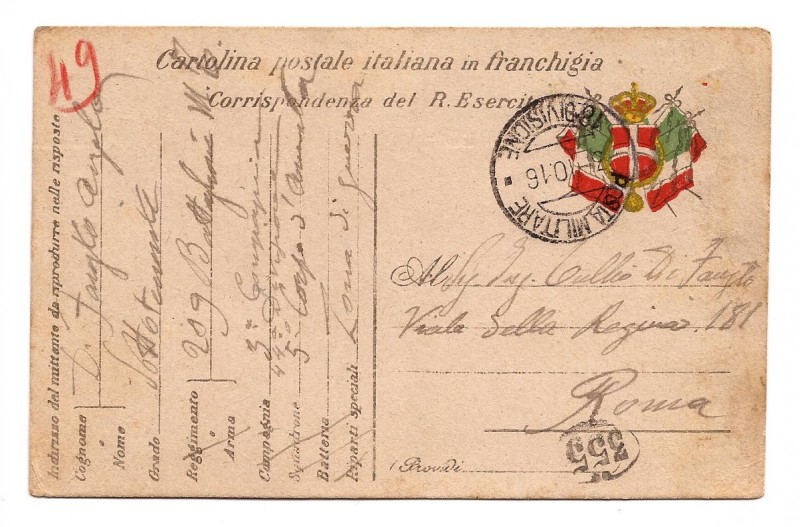 Cartolina postale italiana in franchigia
Corrispondenza del R. Esercito
49
POSTA MILITARE
18 DIVISIONE
10.16
Indirizzo del mittente da riprodurre nelle risposte
Cognome Di Fausto Angelo
e
Nome
Grado Sottotenente
Reggimento 209 Battaglione M.T.
o
Arma
Compagnia 3ª Compagnia
Squadrone 44ª Divisione
Batteria 5° Corpo d'Armata
Riparti speciali Zona di guerra
Ing. Tullio Di Fausto
Viale della Regina 181
Roma
355
(Prov. di